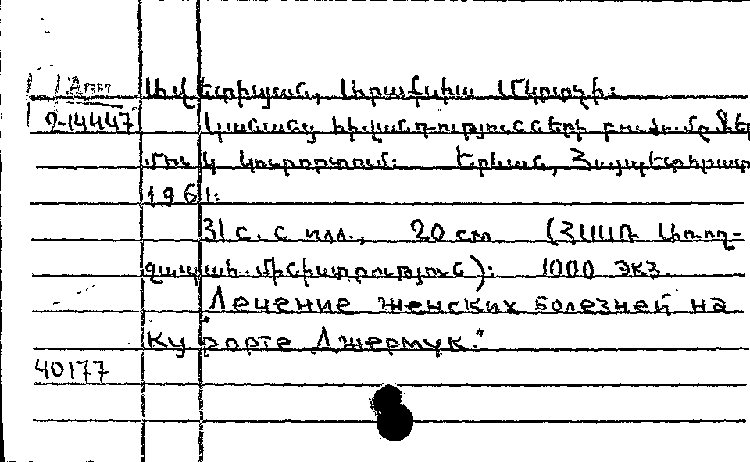 Ավետիսյան, Սիրաքսիա Մկրտչի:
2-14447 Կանանց հիվանդությունների բուժումը Ջեր
մուկ կուրորտում: Երևան, Հայպետհրատ
1961:
31 с. с илл., 20 см (ՀՍՍՌ Առող-
ջապահ. մինիստրություն): 1000 экз.
"Лечение женских болезней на
Курорте Джермук."
40177